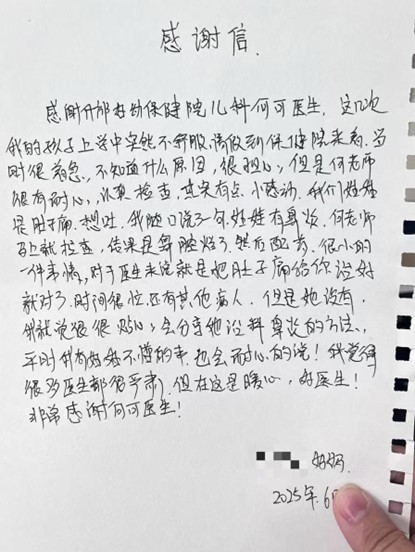 感谢信.
感谢什邡妇幼保健院儿科何可医生. 这几次
我的孩子上学中突然不舒服,请假到保健院来看.当
时很着急、不知道什么原因,很担心,但是何老师
很有耐心,认真检查,其实有点小感动.我们娃娃
是肚子痛.想吐.我随口说了句,娃娃有鼻炎.何老师
马上就检查,结果是鼻腔发炎了然后配药.很小的
一件事情,对于医生来说就是把肚子痛给你治好
就对了.时间很忙,还有其他病人.但是她没有.
我就觉很很贴心,会分享她治料鼻炎的方法、
平时我有好多不懂的事.也会耐心的说!我觉得
很多医生都很严肃,但在这是暖心,好医生!
非常感谢何可医生!
妈妈.
2025年.6